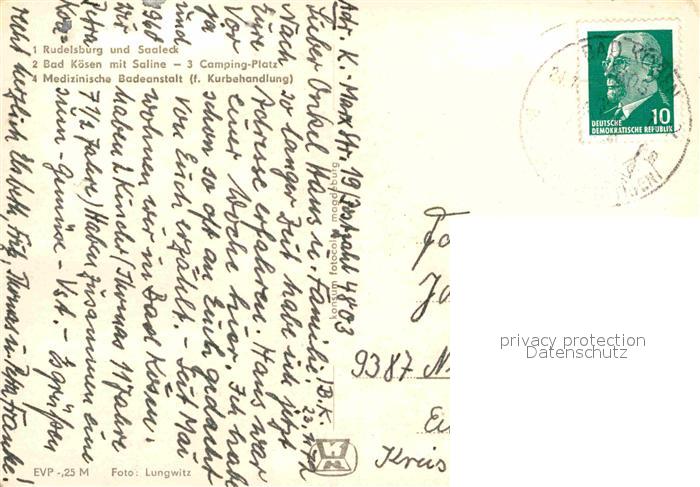 1 Rudelsburg und Saaleck
2 Bad Kösen mit Saline – 3 Camping-Platz
4 Medizinische Badeanstalt (f. Kurbehandlung)
Abs. K.-Marx Str. 19 Postfach 4803
Lieber Onkel Hans u. Familie! B. K.
Nach so langer Zeit habe ich jetzt
Eure Adresse erfahren. Hans war
vor einer Woche hier. Ich habe
schon so oft an Euch gedacht
und von Euch erzählt. – Seit Mai
1968 wohnen wir in Bad Kösen.
Wir haben 2 Kinder (Thomas 11 Jahre
Petra 7 1/2 Jahre) Haben zusammen eine
Gemüse – Vst. – Es grüßen
recht herzlich Elsbeth, Thomas u. Petra
konsum fotocolor magdeburg
EVP -,25 M Foto: Lungwitz
BAD KÖSEN
10
DEUTSCHE
DEMOKRATISCHE REPUBLIK
9387
Kreis
privacy protection
Datenschutz